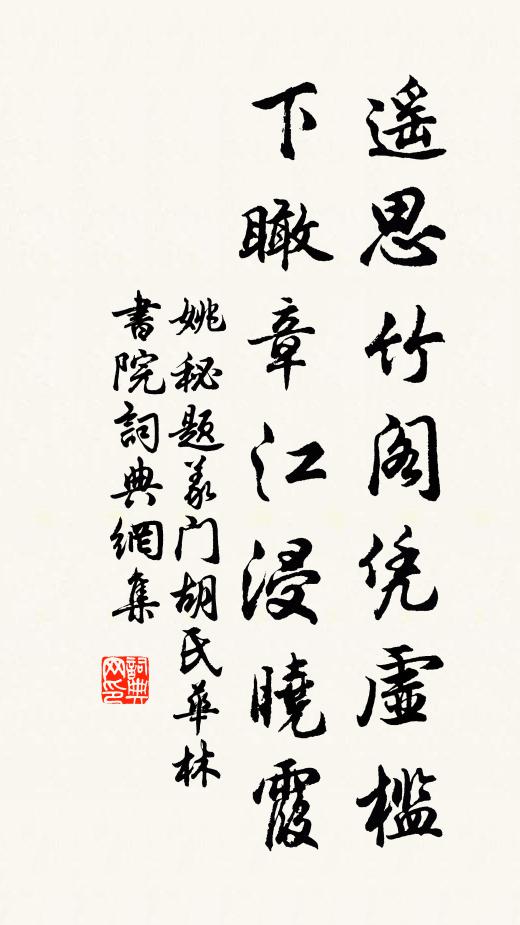 遥思竹阁凭虚槛
下瞰章江浸晓霞
姚秘题义门胡氏华林
书院词典網集
詞典网印